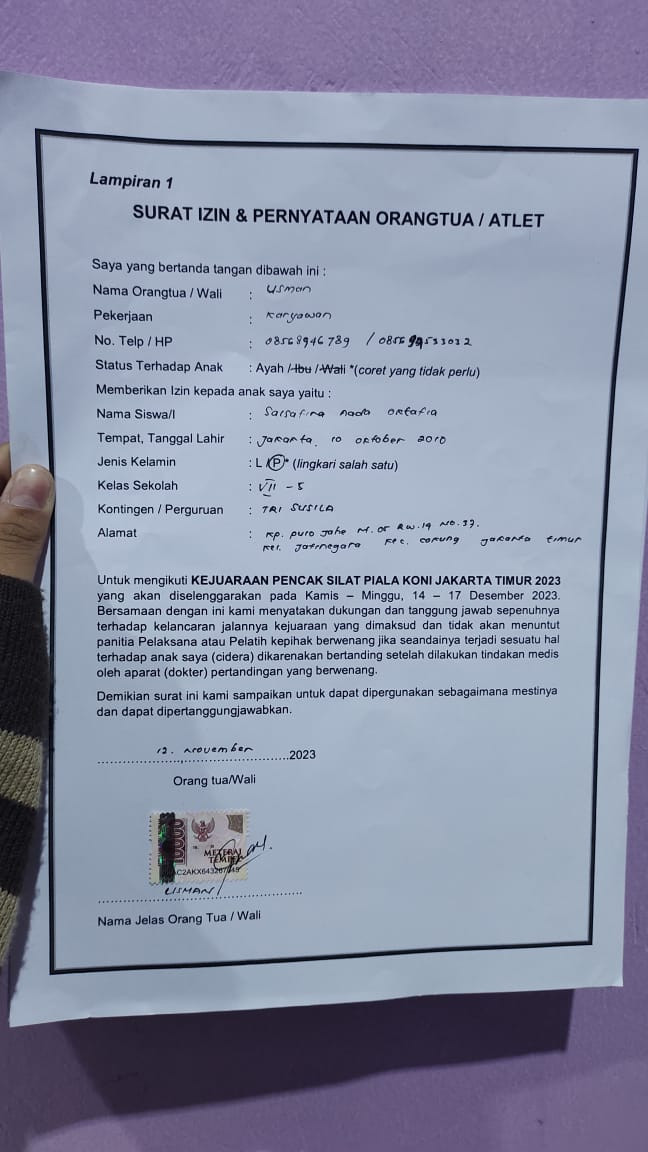 Lampiran 1
SURAT IZIN & PERNYATAAN ORANGTUA / ATLET
Saya yang bertanda tangan dibawah ini :
Nama Orangtua / Wali : Usman
Pekerjaan : Karyawan
No. Telp / HP : 08568946789 /
Status Terhadap Anak : Ayah / Ibu / Wali *(coret yang tidak perlu)
Memberikan Izin kepada anak saya yaitu :
Nama Siswa/I : Salsafina nada oktafia
Tempat, Tanggal Lahir : Jakarta, 10 oktober 2010
Jenis Kelamin : L / P * (lingkari salah satu)
Kelas Sekolah : VII - 5
Kontingen / Perguruan : TRI SUSILA
Alamat : Kp. Puro Jahe Rw. 14 No. 37.
Kel. Jatinegara Kec. Cakung Jakarta timur
Untuk mengikuti KEJUARAAN PENCAK SILAT PIALA KONI JAKARTA TIMUR 2023
yang akan diselenggarakan pada Kamis – Minggu, 14 – 17 Desember 2023.
Bersamaan dengan ini kami menyatakan dukungan dan tanggung jawab sepenuhnya
terhadap kelancaran jalannya kejuaraan yang dimaksud dan tidak akan menuntut
panitia Pelaksana atau Pelatih kepihak berwenang jika seandainya terjadi sesuatu hal
terhadap anak saya (cidera) dikarenakan bertanding setelah dilakukan tindakan medis
oleh aparat (dokter) pertandingan yang berwenang.
Demikian surat ini kami sampaikan untuk dapat dipergunakan sebagaimana mestinya
dan dapat dipertanggungjawabkan.
12. November 2023
Orang tua/Wali
10000
METERAI
TEMPEL
USMAN
Nama Jelas Orang Tua / Wali